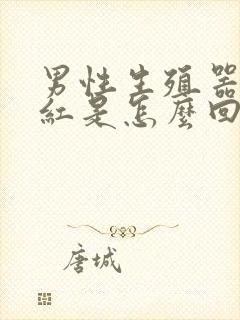 男性生殖器
紅是怎麼回
唐城